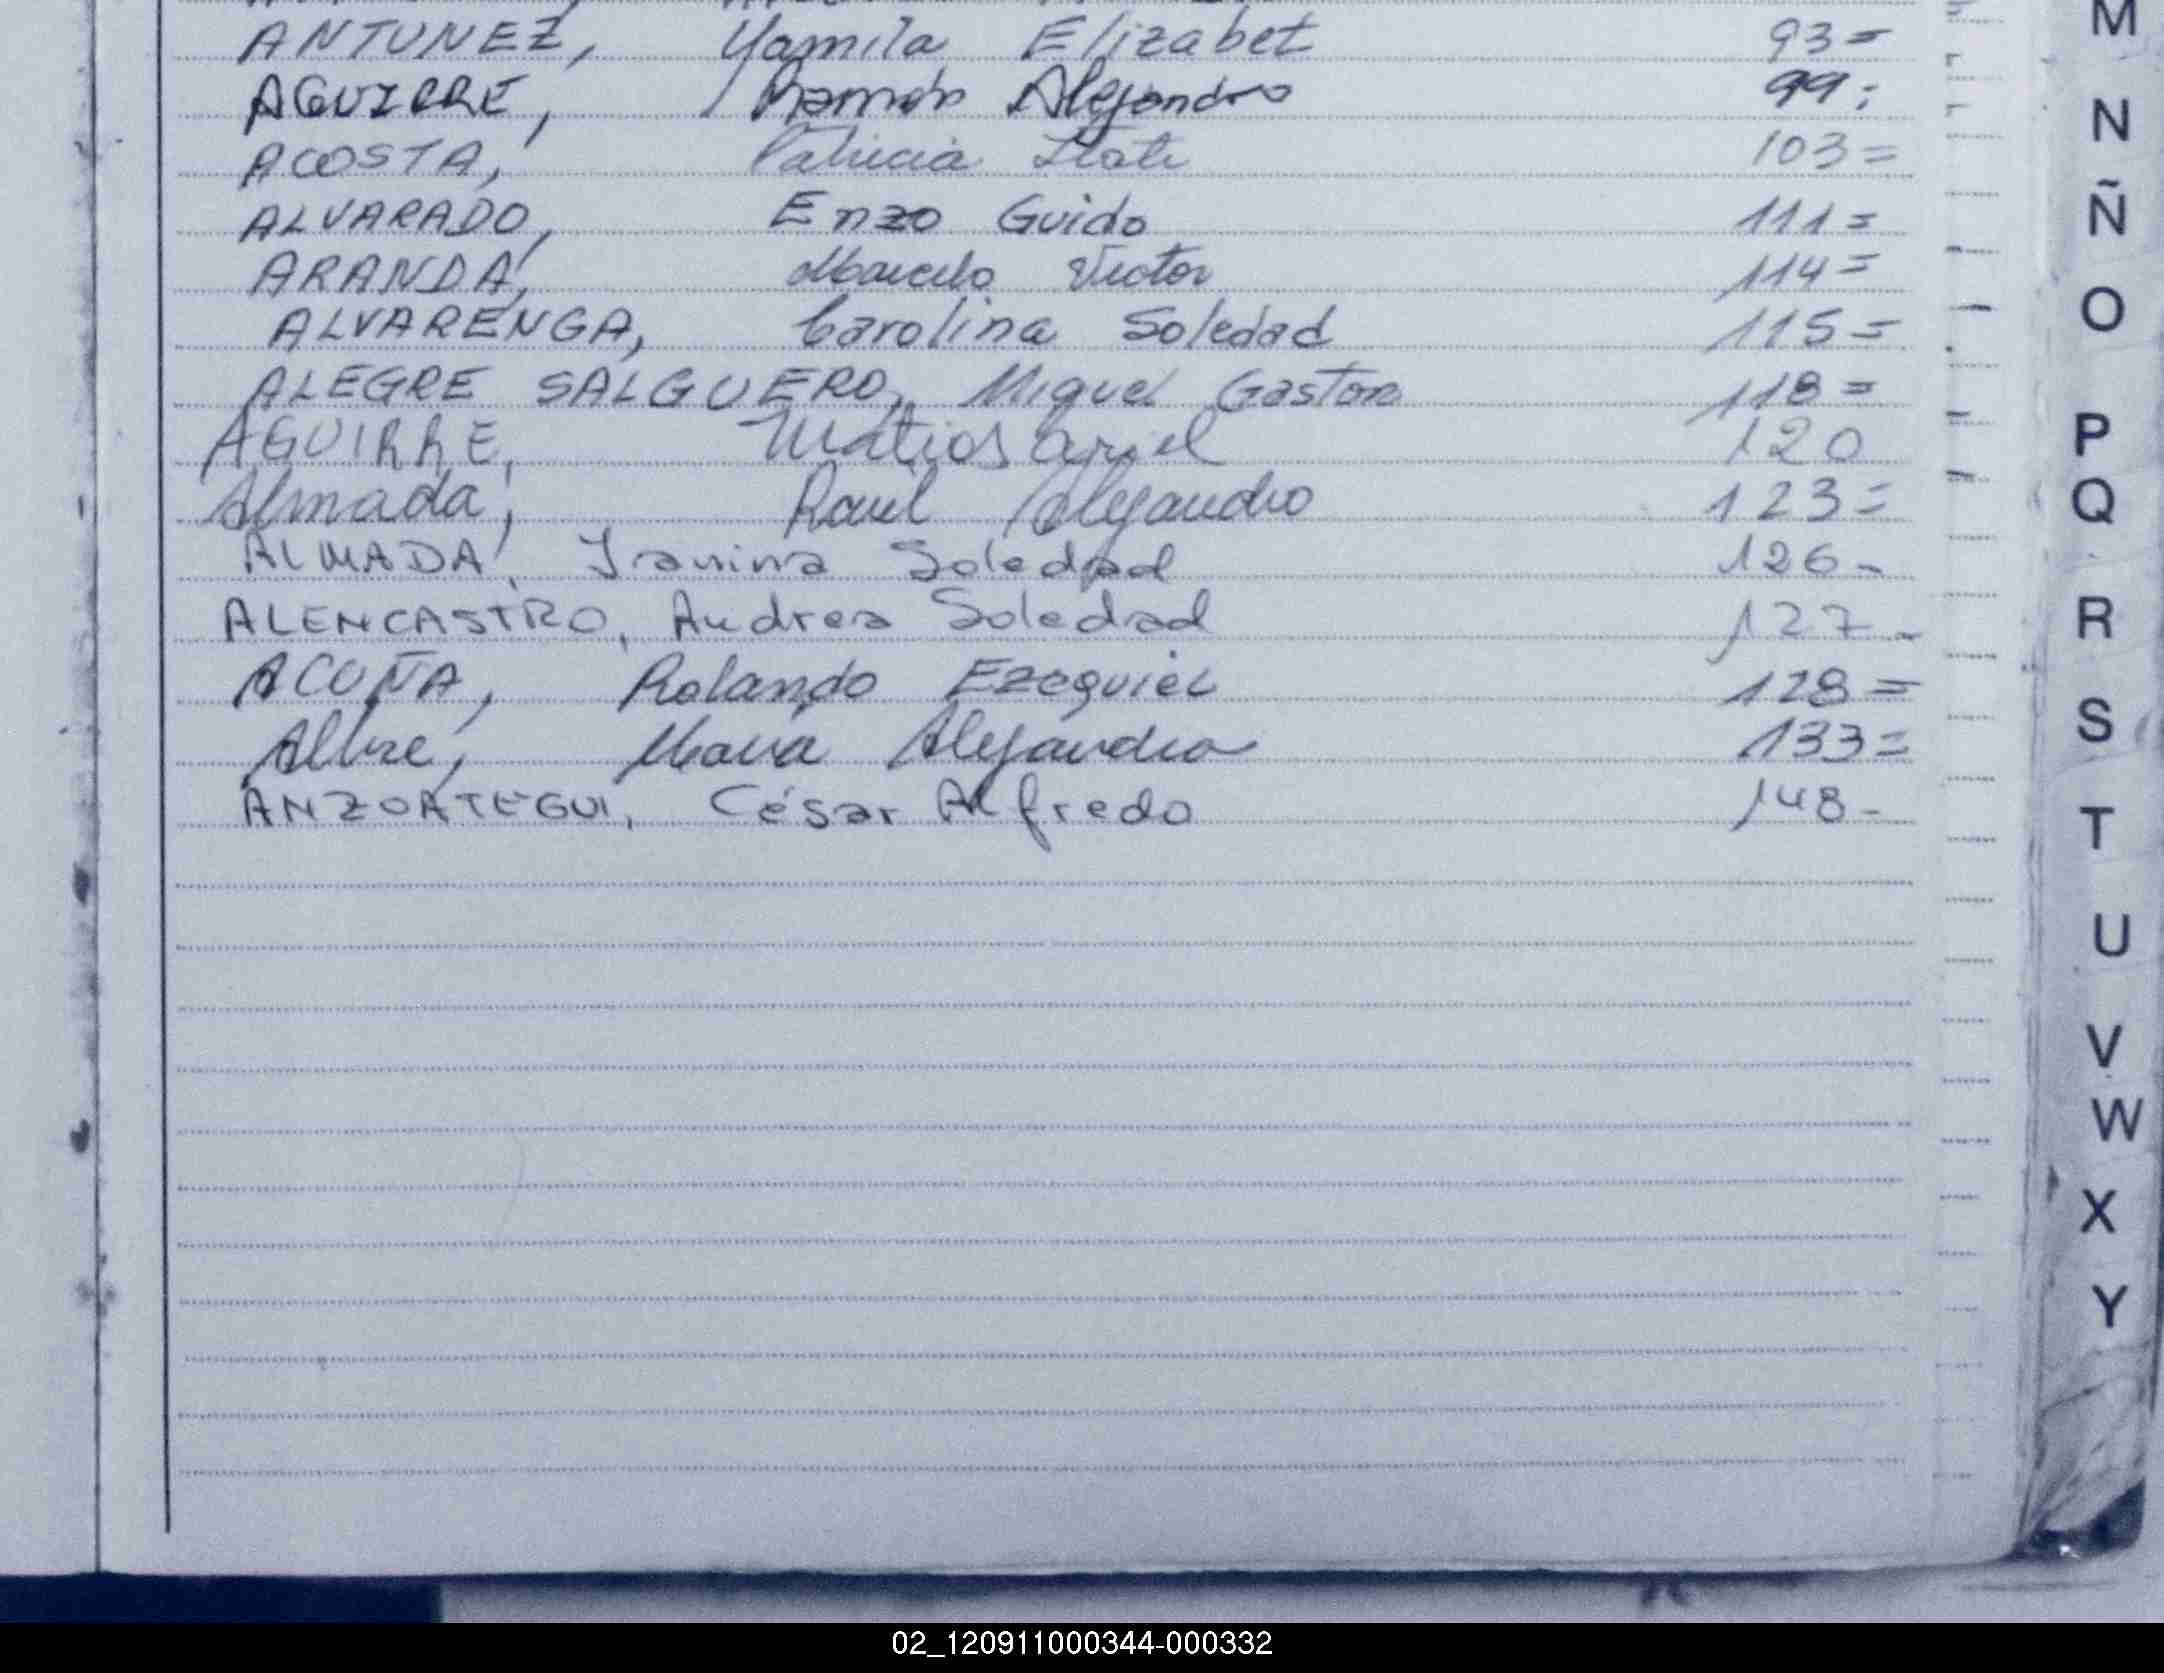 ANTUNEZ, Yamila Elizabet 93=
AGUIRRE, Ramón Alejandro 99=
ACOSTA, Patricia 103=
ALVARADO, Enzo Guido 111=
ARANDA, Marcelo Victor 114=
ALVARENGA, Carolina Soledad 115=
ALEGRE SALGUERO, Miguel Gaston 118=
AGUIRRE, Matias Ariel 120
Almada, Raul Alejandro 123=
ALMADA, Ianina Soledad 126-
ALENCASTRO, Andrea Soledad 127-
ACUÑA, Rolando Ezequiel 128=
María Alejandra 133=
ANZOATEGUI, César Alfredo 148-
M
N
Ñ
O
P
Q
R
S
T
U
V
W
X
Y
02_120911000344-000332